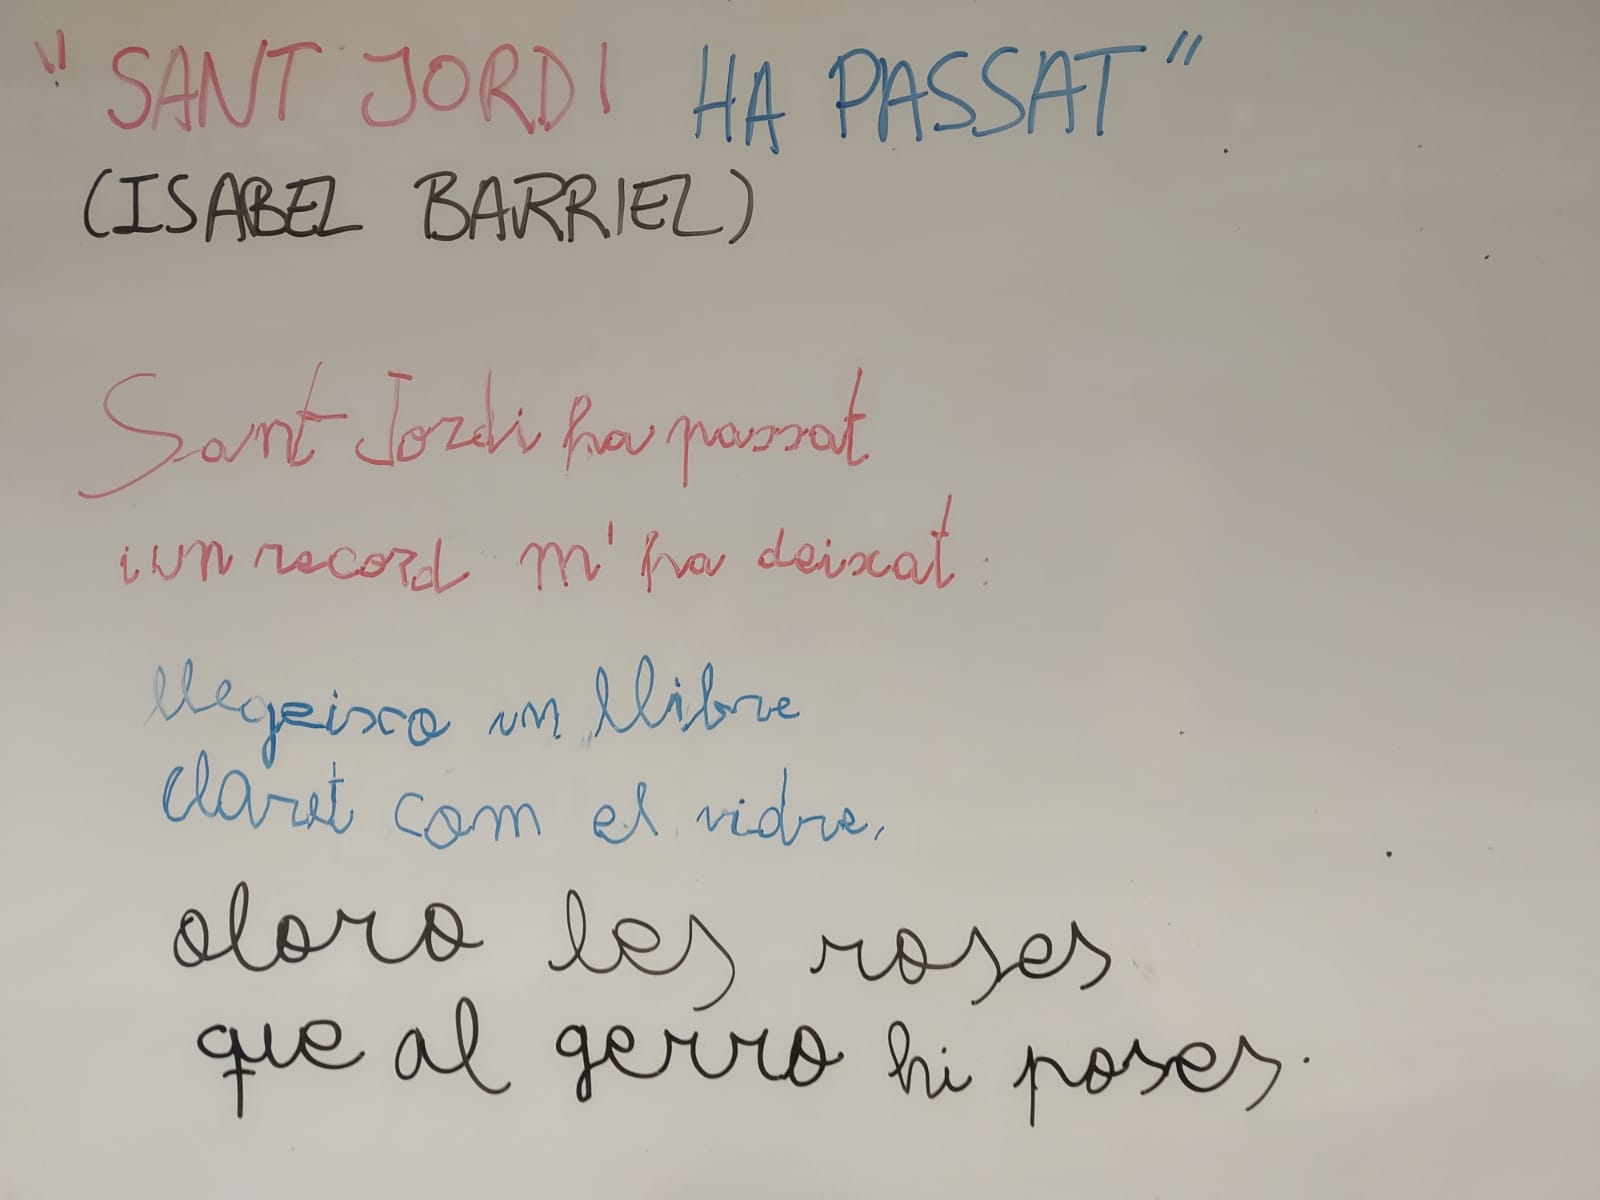 "SANT JORDI HA PASSAT"
(ISABEL BARRIEL)
Sant Jordi ha passat
i un record m'ha deixat:
llegeixo un llibre
claret com el vidre,
oloro les roses
que al gerro hi poses.